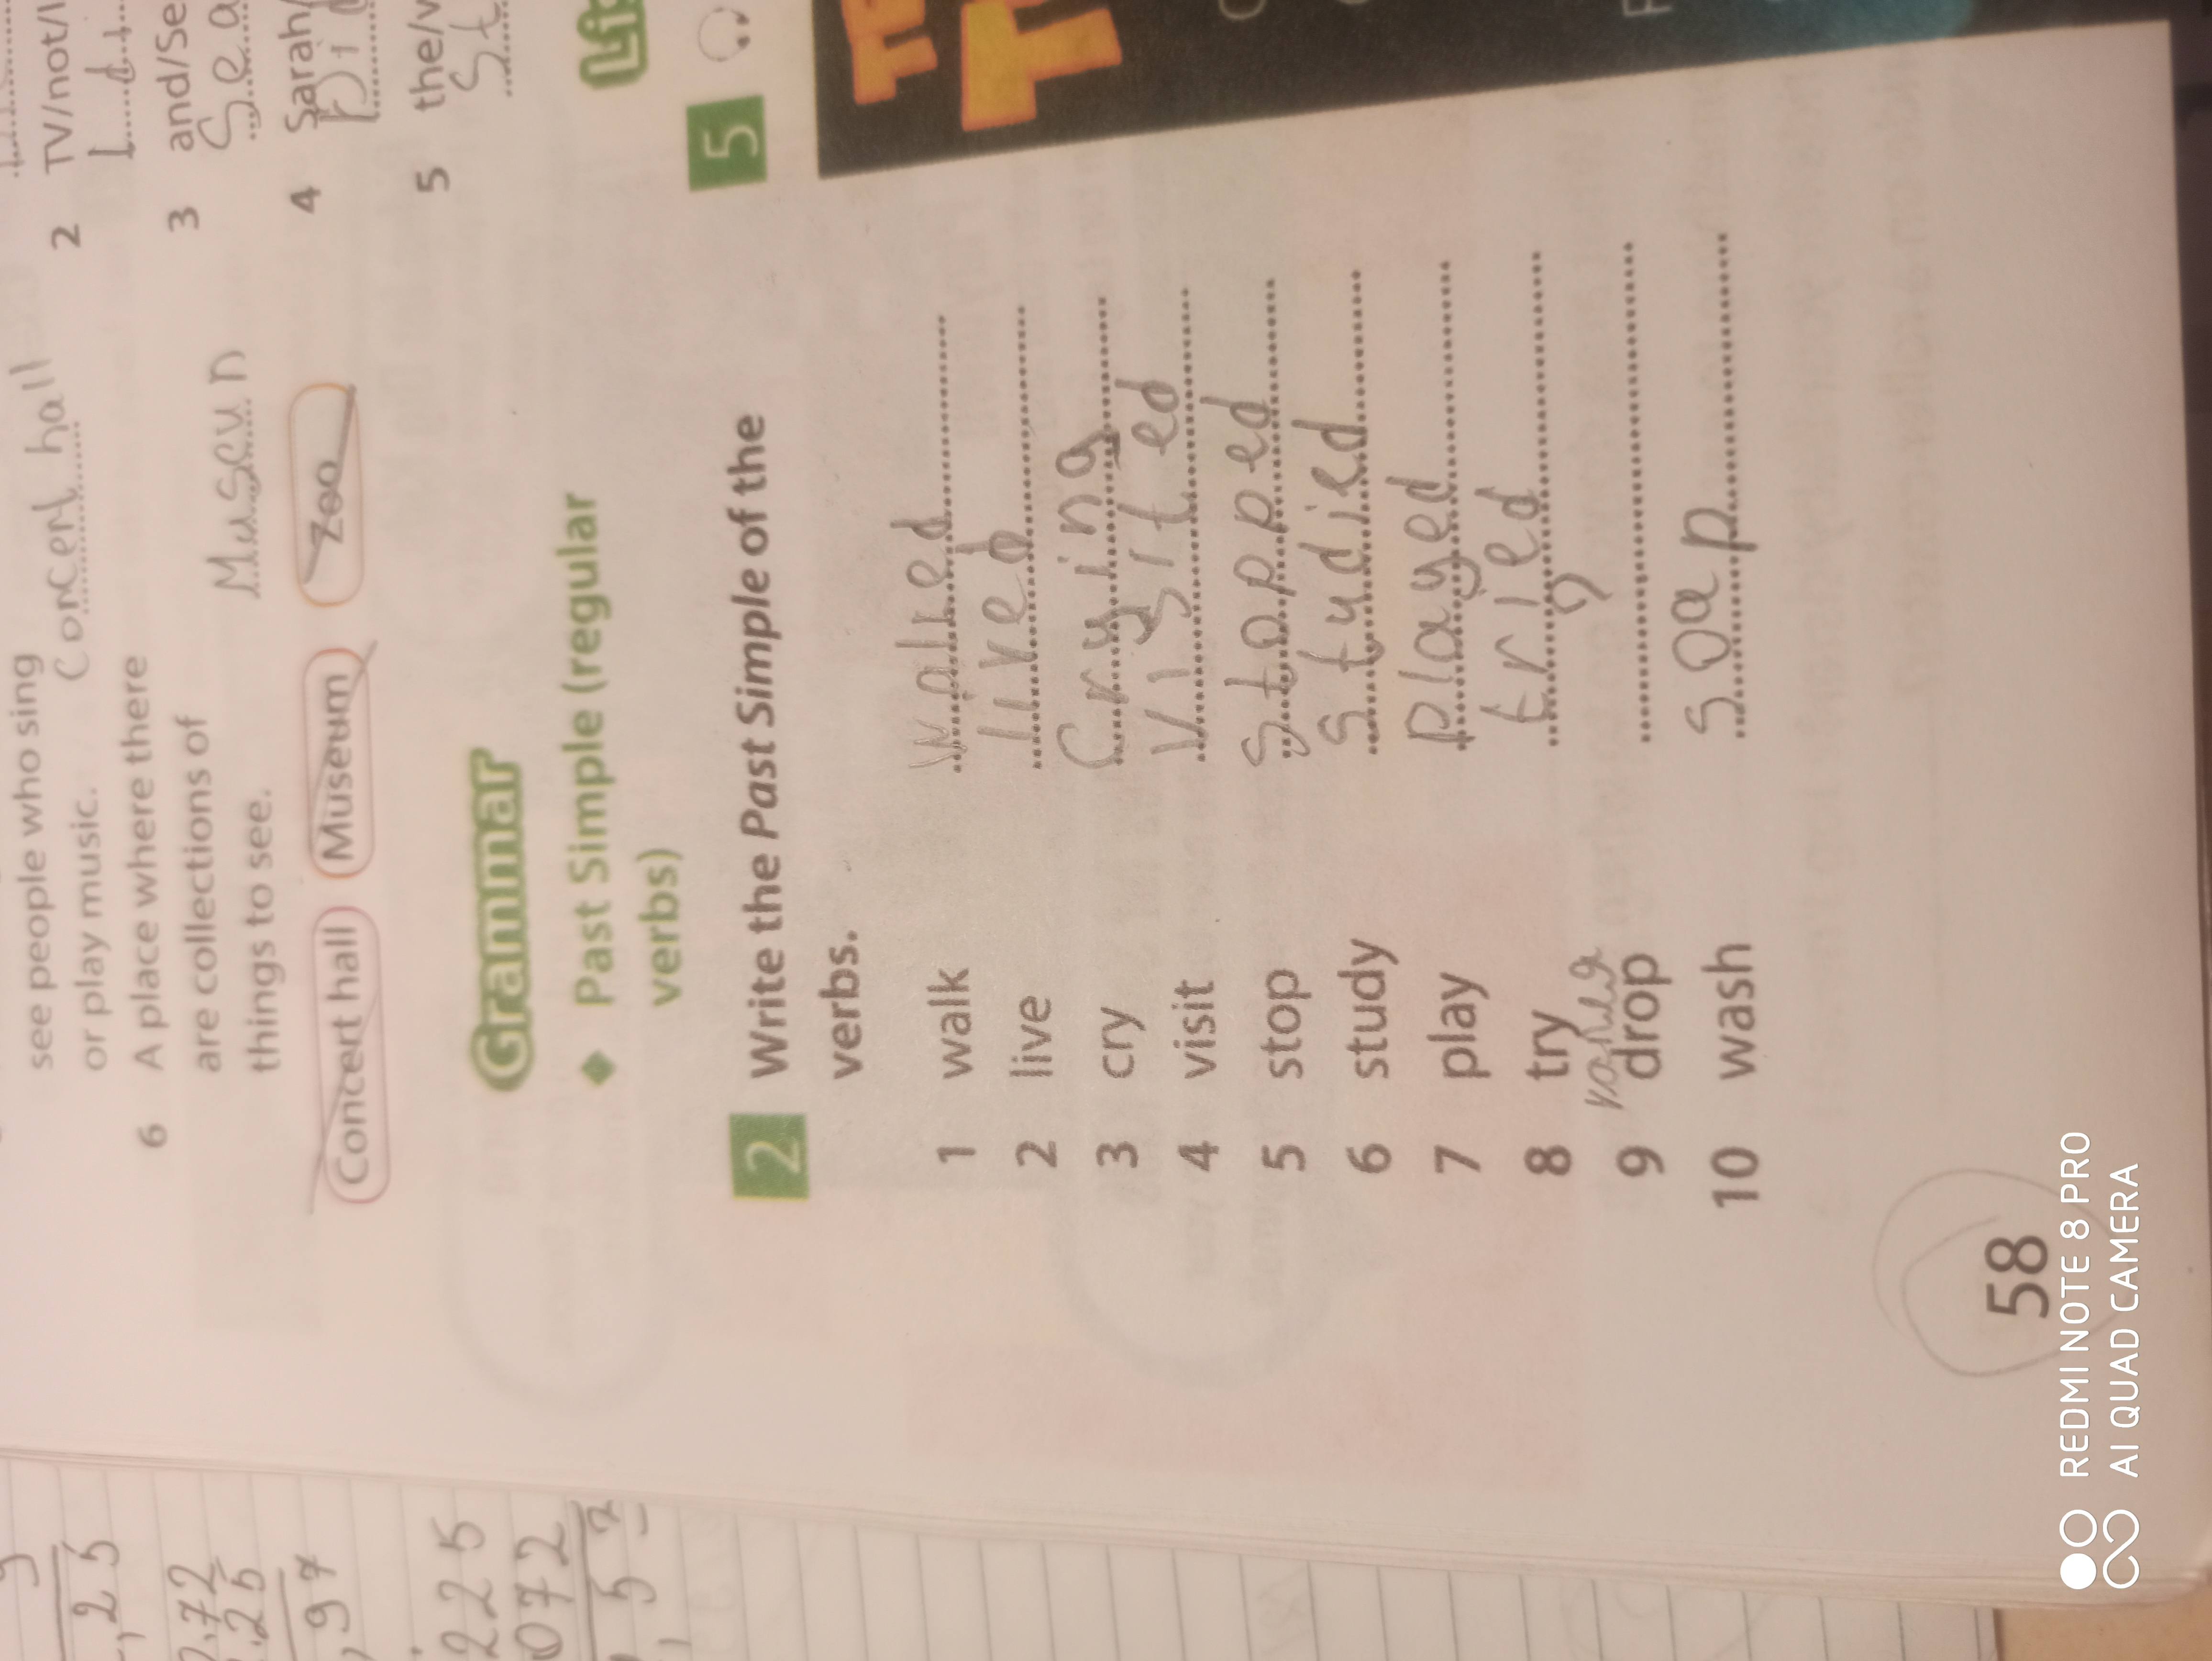 see people who sing
or play music. Concert hall
6 A place where there
are collections of
things to see. Museun
Concert hall Museum Zoo
Grammar
◆ Past Simple (regular
verbs)
2 Write the Past Simple of the
verbs.
1 walk walred
2 live lived
3 cry Crying
4 visit Visited
5 stop stopped
6 study studied
7 play played
8 try tried
9 drop
10 wash soap
58
2 TV/not/
3 and/Se
Sea
4 Sarah/
Did
5 the/v
St
Lis
5
225
072
REDMI NOTE 8 PRO
AI QUAD CAMERA